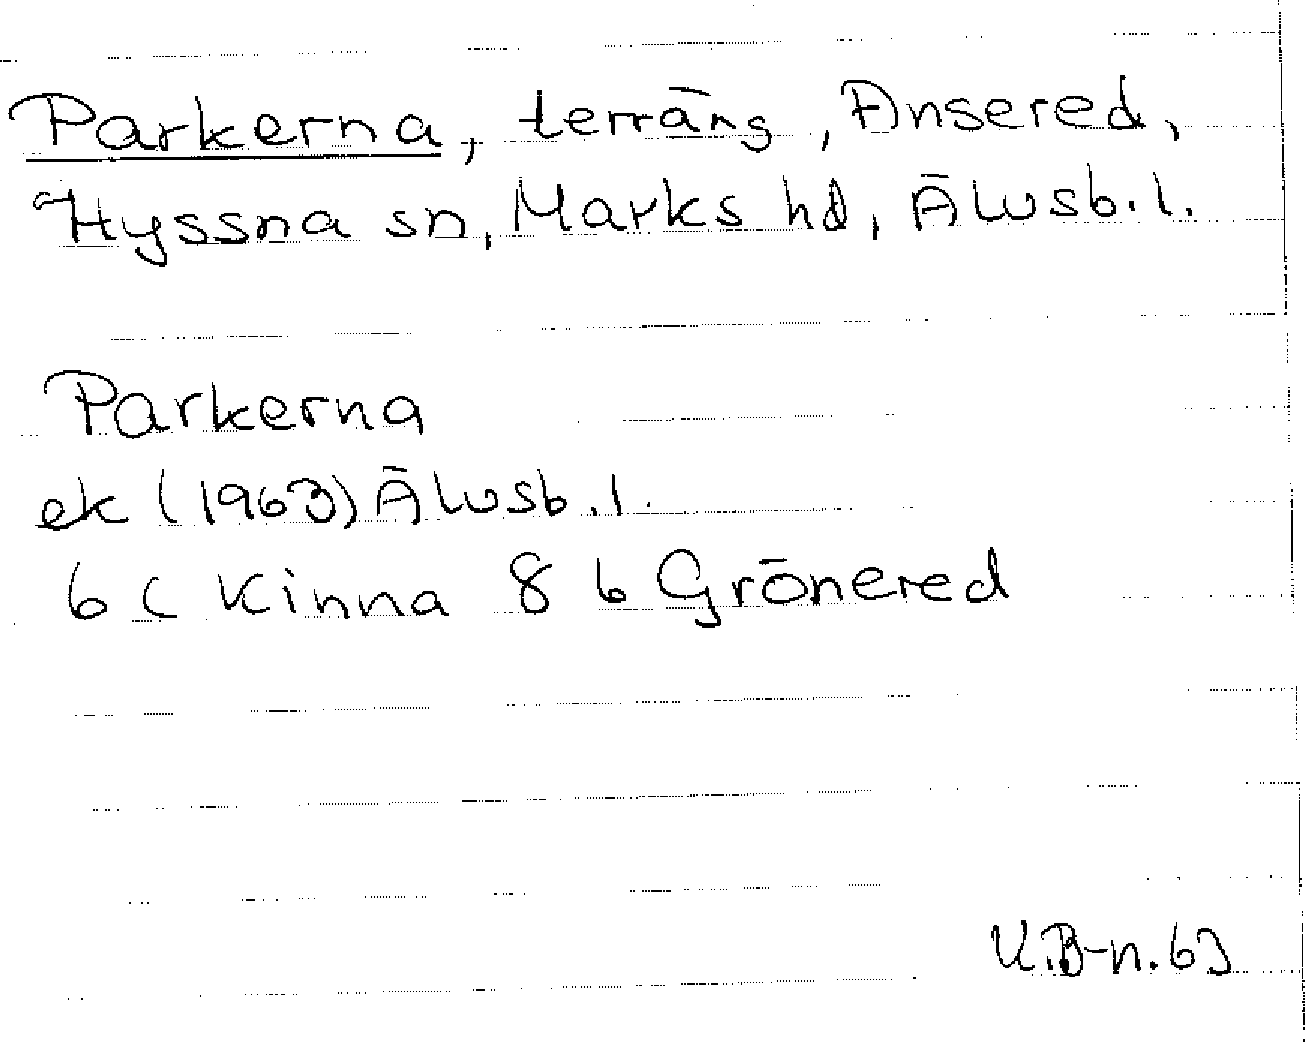 Parkerna, terräng, Ansered,
Hyssna sn, Marks hd, Älvsb. l.
Parkerna
ek (1963) Älvsb. l.
6 C Kinna 8 b Grönered
K.B-n. 63